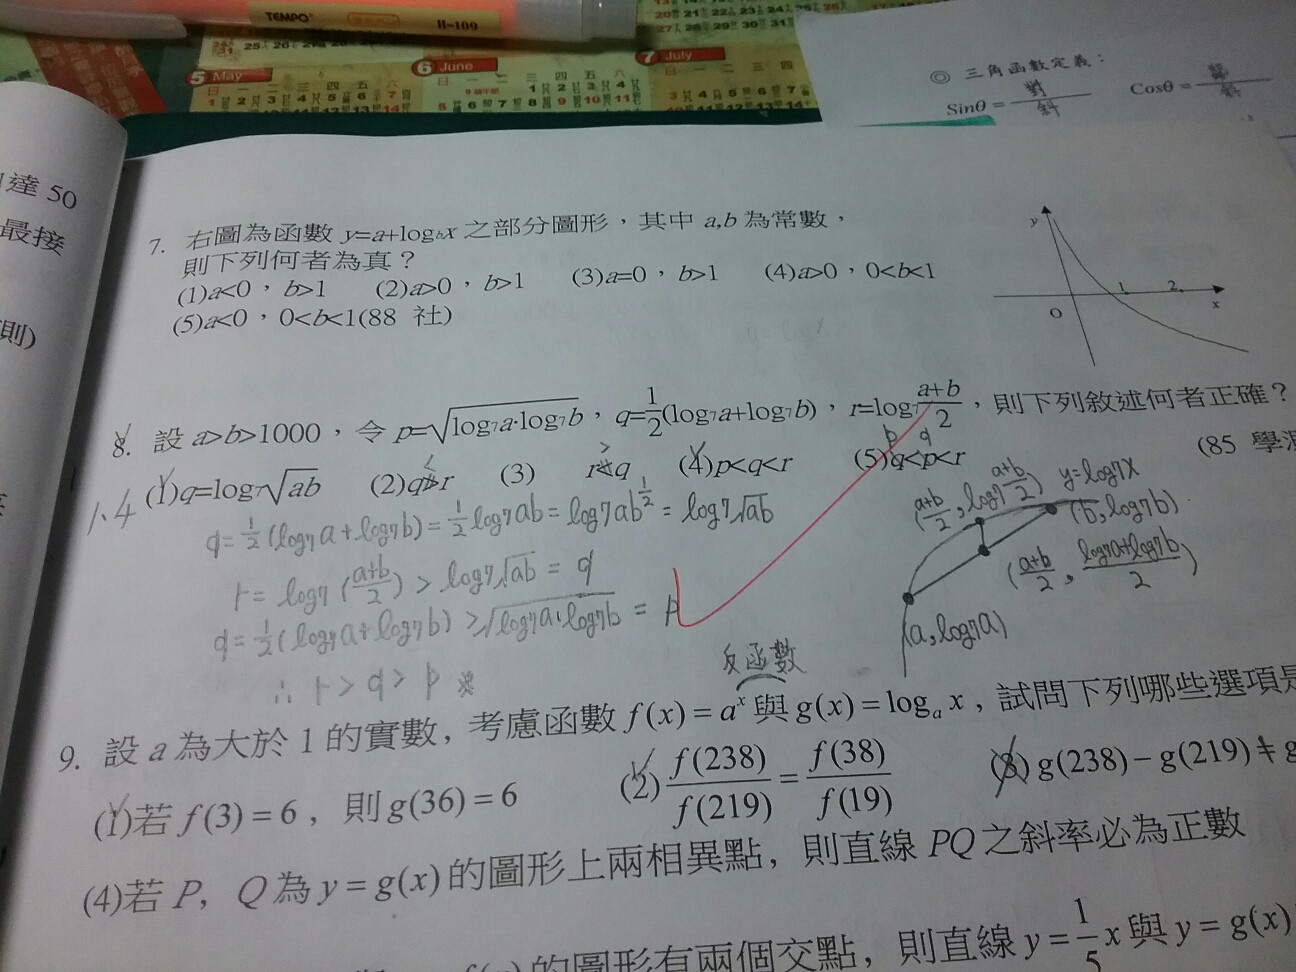 TEMPO II-100
5 May
6 June
7 July
◎ 三角函數定義：
Sinθ = 對/斜 Cosθ =
達 50
最接
則)
7. 右圖為函數 y=a+log_b x 之部分圖形，其中 a,b 為常數，
則下列何者為真？
(1)a<0，b>1 (2)a>0，b>1 (3)a=0，b>1 (4)a>0，0<b<1
(5)a<0，0<b<1(88 社)
y
O 1 2 x
8. 設 a>b>1000，令 p=√(log₇a·log₇b)，q=1/2(log₇a+log₇b)，r=log₇ (a+b)/2，則下列敘述何者正確？
(1)q=log₇√ab (2)q>r (3) r<q (4)p<q<r (5)q<p<r
(85 學測
1、4
q = 1/2 (log₇a + log₇b) = 1/2 log₇ab = log₇ab^(1/2) = log₇√ab
r = log₇ ((a+b)/2) > log₇√ab = q
q = 1/2 (log₇a + log₇b) > √(log₇a·log₇b) = p
∴ r > q > p
((a+b)/2, log₇ (a+b)/2) y=log₇x
(b, log₇b)
((a+b)/2, (log₇a+log₇b)/2)
(a, log₇a)
反函數
9. 設 a 為大於 1 的實數, 考慮函數 f(x) = a^x 與 g(x) = log_a x , 試問下列哪些選項是
(1)若 f(3) = 6 , 則 g(36) = 6 (2) f(238)/f(219) = f(38)/f(19) (3) g(238) − g(219) = g
(4)若 P, Q 為 y = g(x) 的圖形上兩相異點, 則直線 PQ 之斜率必為正數
的圖形有兩個交點, 則直線 y = 1/5 x 與 y = g(x)